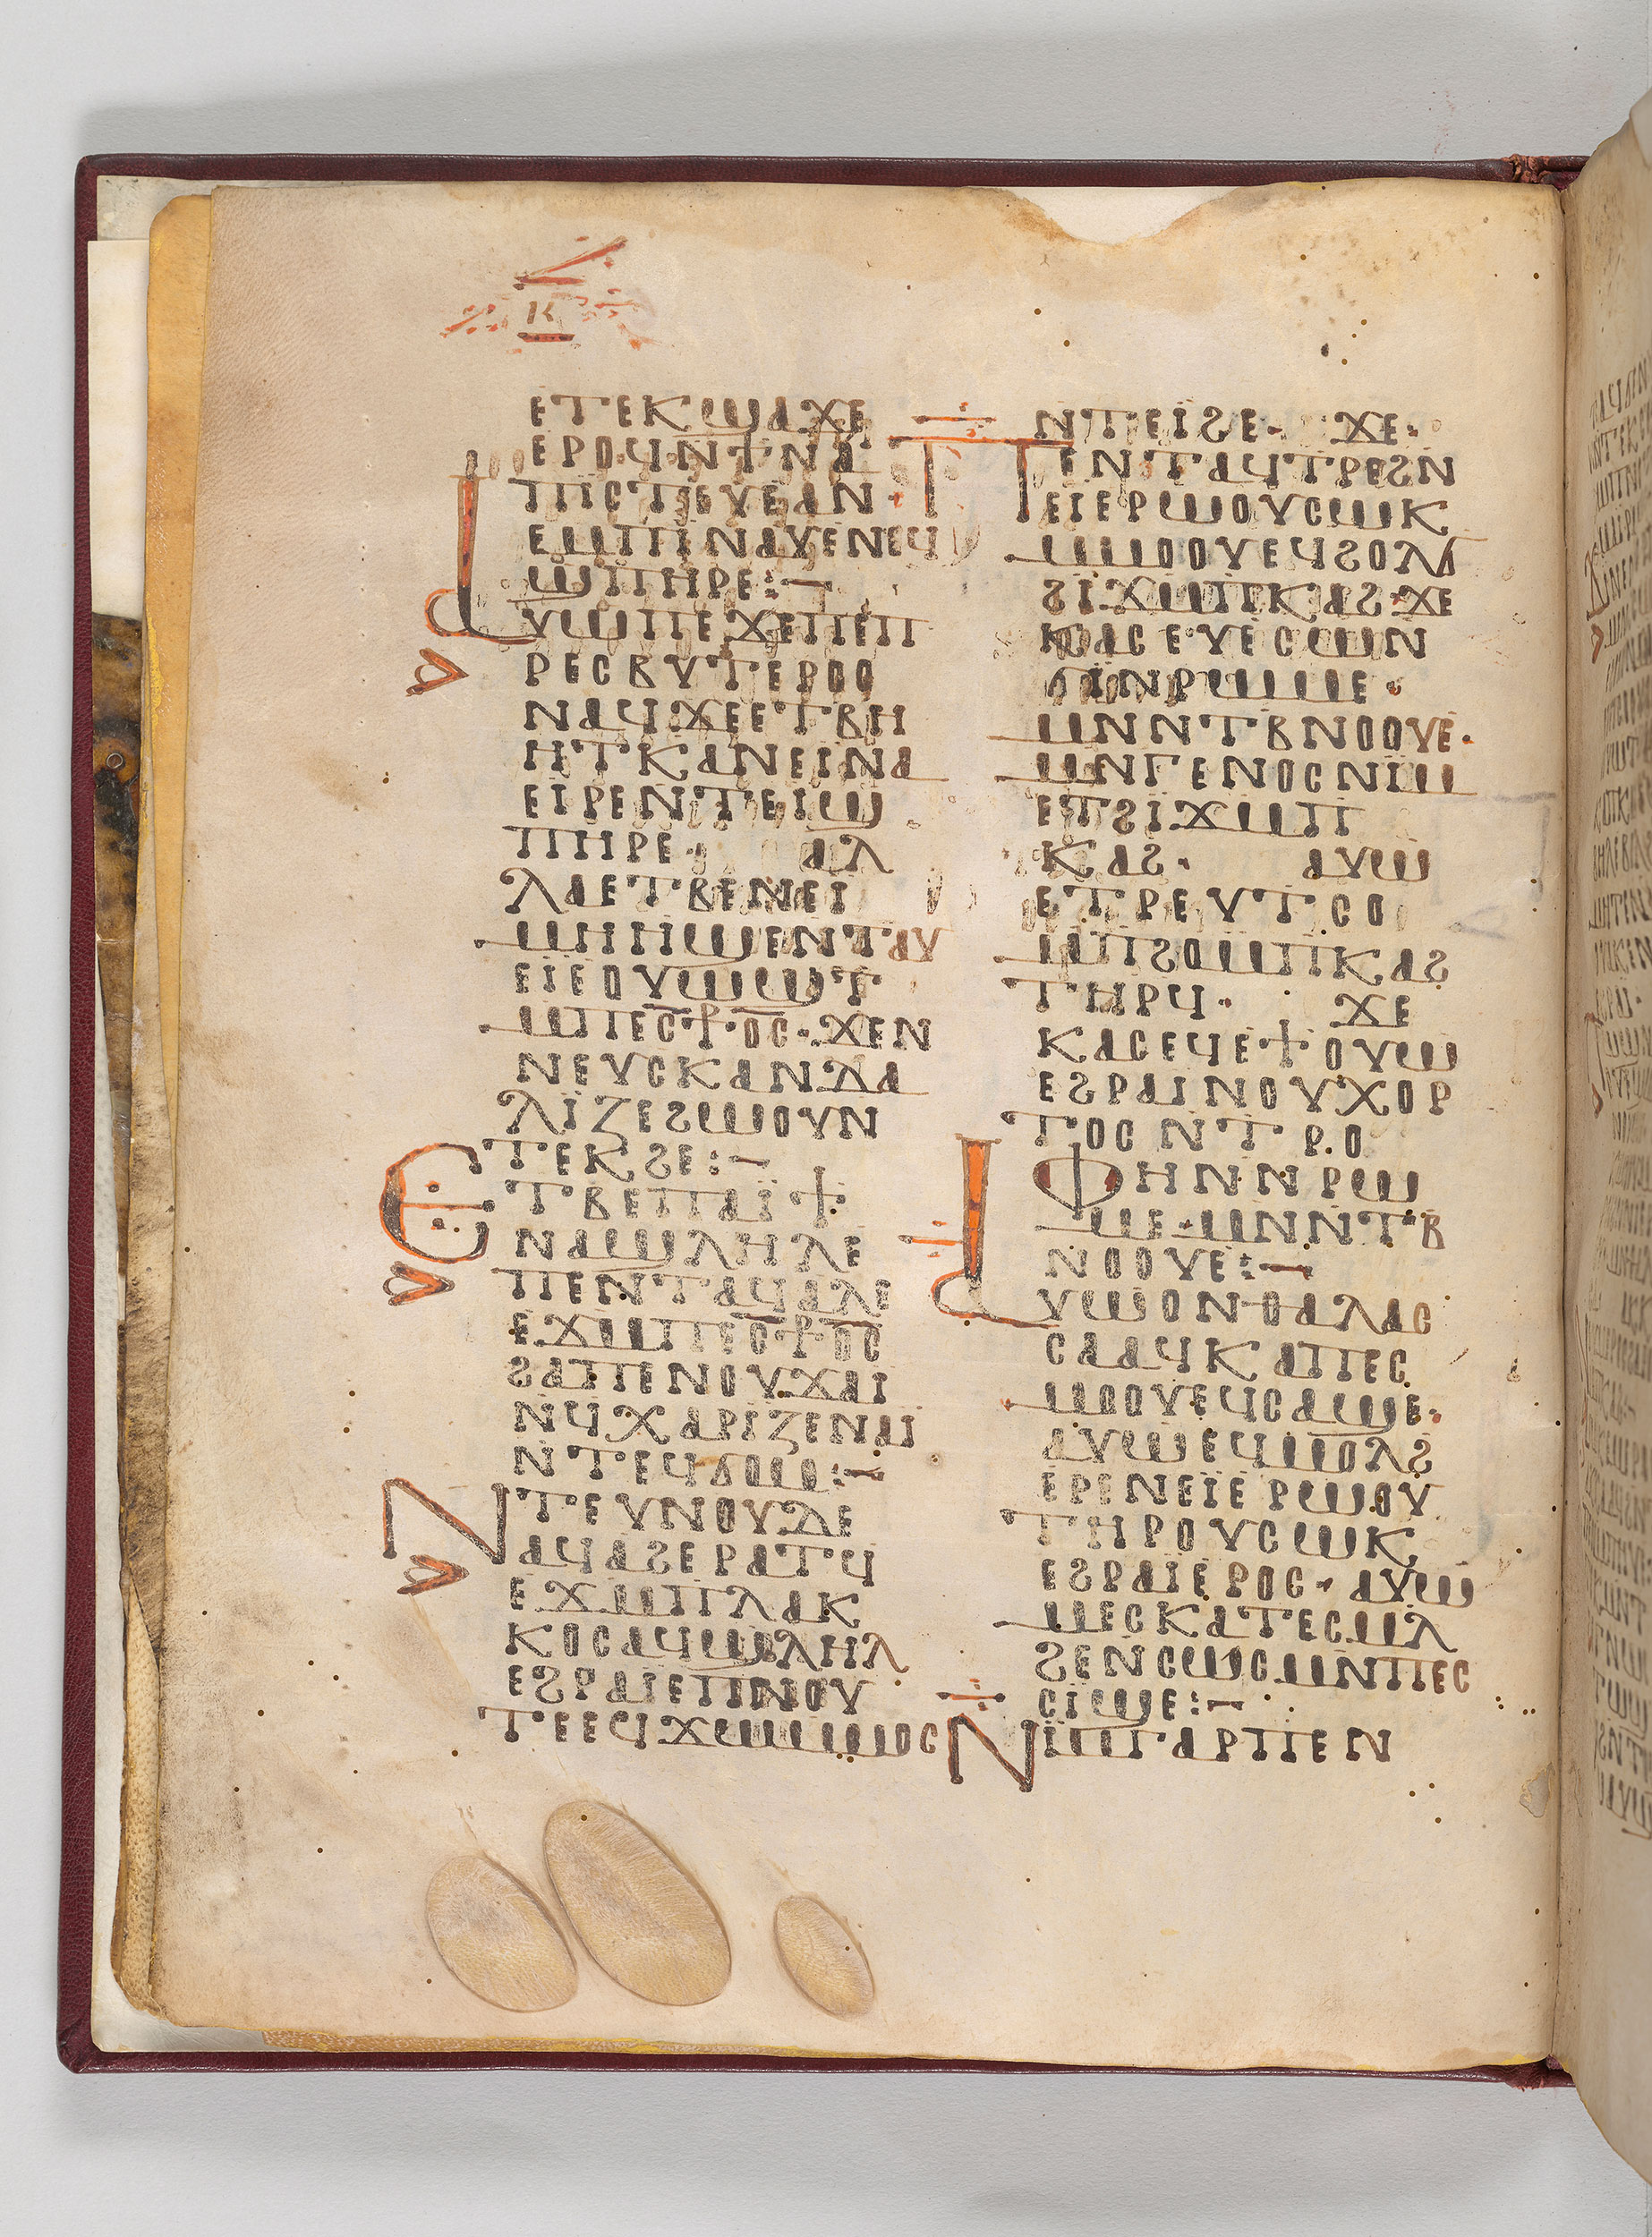 ⲕ
ⲉⲧⲉⲕϣⲁϫⲉ
ⲉⲣⲟϥⲛϯⲛⲁ
ⲡⲓⲥⲧⲉⲩⲉⲁⲛ
ⲉⲙⲡⲓⲛⲁⲩⲉⲛⲉϥ
ϣⲡⲏⲣⲉ:—
ⲁⲩⲱⲡⲉϫⲉⲡⲉⲡ
ⲣⲉⲥⲃⲩⲧⲉⲣⲟⲥ
ⲛⲁϥϫⲉⲉⲧⲃⲏ
ⲏⲧⲕⲁⲛⲉⲓⲛⲁ
ⲉⲓⲣⲉⲛⲧⲉⲓϣ
ⲡⲏⲣⲉ· ⲁⲗ
ⲗⲁⲉⲧⲃⲉⲛⲉⲓ
ⲙⲏⲏϣⲉⲛⲧⲁⲩ
ⲉⲓⲉⲟⲩⲱϣⲧ
ⲙⲡⲉⲥ⳨ⲟⲥ·ϫⲉⲛ
ⲛⲉⲩⲥⲕⲁⲛⲇⲁ
ⲗⲓⲍⲉϩⲱⲟⲩⲛ
ⲧⲉⲕϩⲉ:—
ⲉⲧⲃⲉⲡⲁⲓ̈ϯ
ⲛⲁϣⲗⲏⲗⲉ
ⲡⲉⲛⲧⲁϥⲁⲗⲉ
ⲉϫⲙⲡⲉⲥ⳨ⲟⲥ
ϩⲁⲡⲉⲛⲟⲩϫⲁⲓ
ⲛϥⲭⲁⲣⲓⲍⲉⲛⲁⲓ
ⲛⲧⲉϥϭⲟⲙ:—
ⲛⲧⲉⲩⲛⲟⲩⲇⲉ
ⲁϥⲁϩⲉⲣⲁⲧϥ
ⲉϫⲙⲡⲗⲁⲕ
ⲕⲟⲥⲁϥϣⲗⲏⲗ
ⲉϩⲣⲁⲓⲉⲡⲛⲟⲩ
ⲧⲉⲉϥϫⲱⲙⲙⲟⲥ
ⲛⲧⲉⲓϩⲉ· ϫⲉ·
ⲡⲉⲛⲧⲁϥⲧⲣⲉϩⲛ
ⲉⲓⲉⲣⲱⲟⲩⲥⲱⲕ
ⲙⲙⲟⲟⲩⲉϥϩⲟⲗϭ
ϩⲓϫⲙⲡⲕⲁϩ·ϫⲉ
ⲕⲁⲥⲉⲩⲉⲥⲱⲛ
ϭⲓⲛⲣⲱⲙⲉ·
ⲙⲛⲛⲧⲃⲛⲟⲟⲩⲉ·
ⲙⲛⲅⲉⲛⲟⲥⲛⲓⲙ
ⲉⲧϩⲓϫⲙⲡ
ⲕⲁϩ· ⲁⲩⲱ
ⲉⲧⲣⲉⲩⲧⲥⲟ
ⲙⲡϩⲟⲙⲡⲕⲁϩ
ⲧⲏⲣϥ· ϫⲉ
ⲕⲁⲥⲉϥⲉϯⲟⲩⲱ
ⲉϩⲣⲁⲓⲛⲟⲩⲭⲟⲣ
ⲧⲟⲥ ⲛⲧⲣⲟ
ⲫⲏⲛⲛⲣⲱ
ⲙⲉ·ⲙⲛⲛⲧⲃ
ⲛⲟⲟⲩⲉ:—
ⲁⲩⲱⲟⲛⲑⲁⲗⲁⲥ
ⲥⲁⲁϥⲕⲁⲡⲉⲥ
ⲙⲟⲟⲩⲉϥⲥⲁϣⲉ·
ⲁⲩⲱⲉϥⲙⲟⲗϩ
ⲉⲣⲉⲛⲉⲓⲉⲣⲱⲟⲩ
ⲧⲏⲣⲟⲩⲥⲱⲕ
ⲉϩⲣⲁⲓⲉⲣⲟⲥ·ⲁⲩⲱ
ⲙⲉⲥⲕⲁⲧⲉⲥⲙⲗ
ϩⲉⲛⲥⲱⲥⲙⲛⲡⲉⲥ
ⲥⲓϣⲉ:—
ⲛⲓⲙⲅⲁⲣⲡⲉⲛ